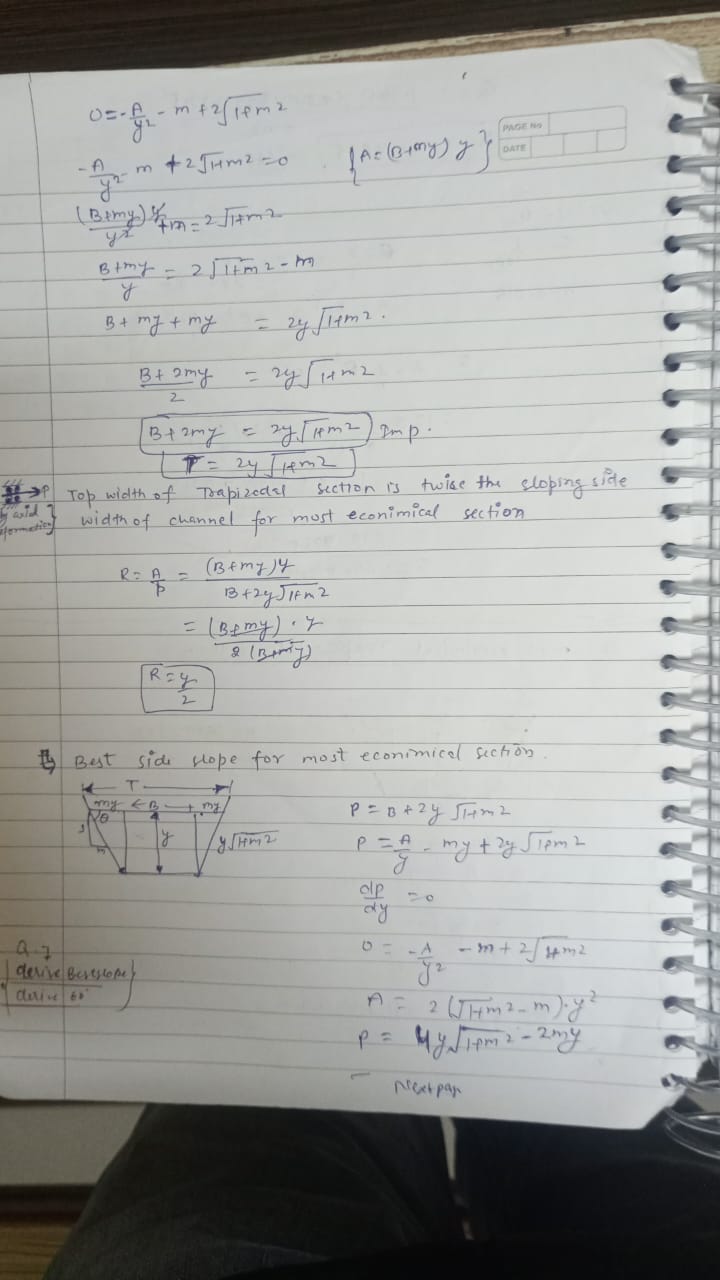 0 = -A/y² - m + 2√1+m²
PAGE No
DATE
-A/y² - m + 2√1+m² = 0 {A = (B+my) y}
(B+my) y/y² + m = 2√1+m²
B+my/y = 2√1+m² - m
B + my + my = 2y √1+m².
B + 2my/2 = 2y √1+m²
B + 2my = 2y √1+m² Imp.
T = 2y √1+m²
P
Top width of Trapizodal section is twise the sloping side
width of channel for most econimical section
R = A/P = (B+my)y/B+2y√1+m²
= (B+my) . y/2 (B+my)
R = y/2
Best side slope for most econimical section.
T
my ← B → my
θ
1
m
y
y√1+m²
P = B + 2y √1+m²
P = A/y - my + 2y √1+m²
dp/dy = 0
0 = -A/y² - m + 2√1+m²
Q.7
derive
derive 60°
A = 2 (√1+m² - m).y²
P = 4y√1+m² - 2my